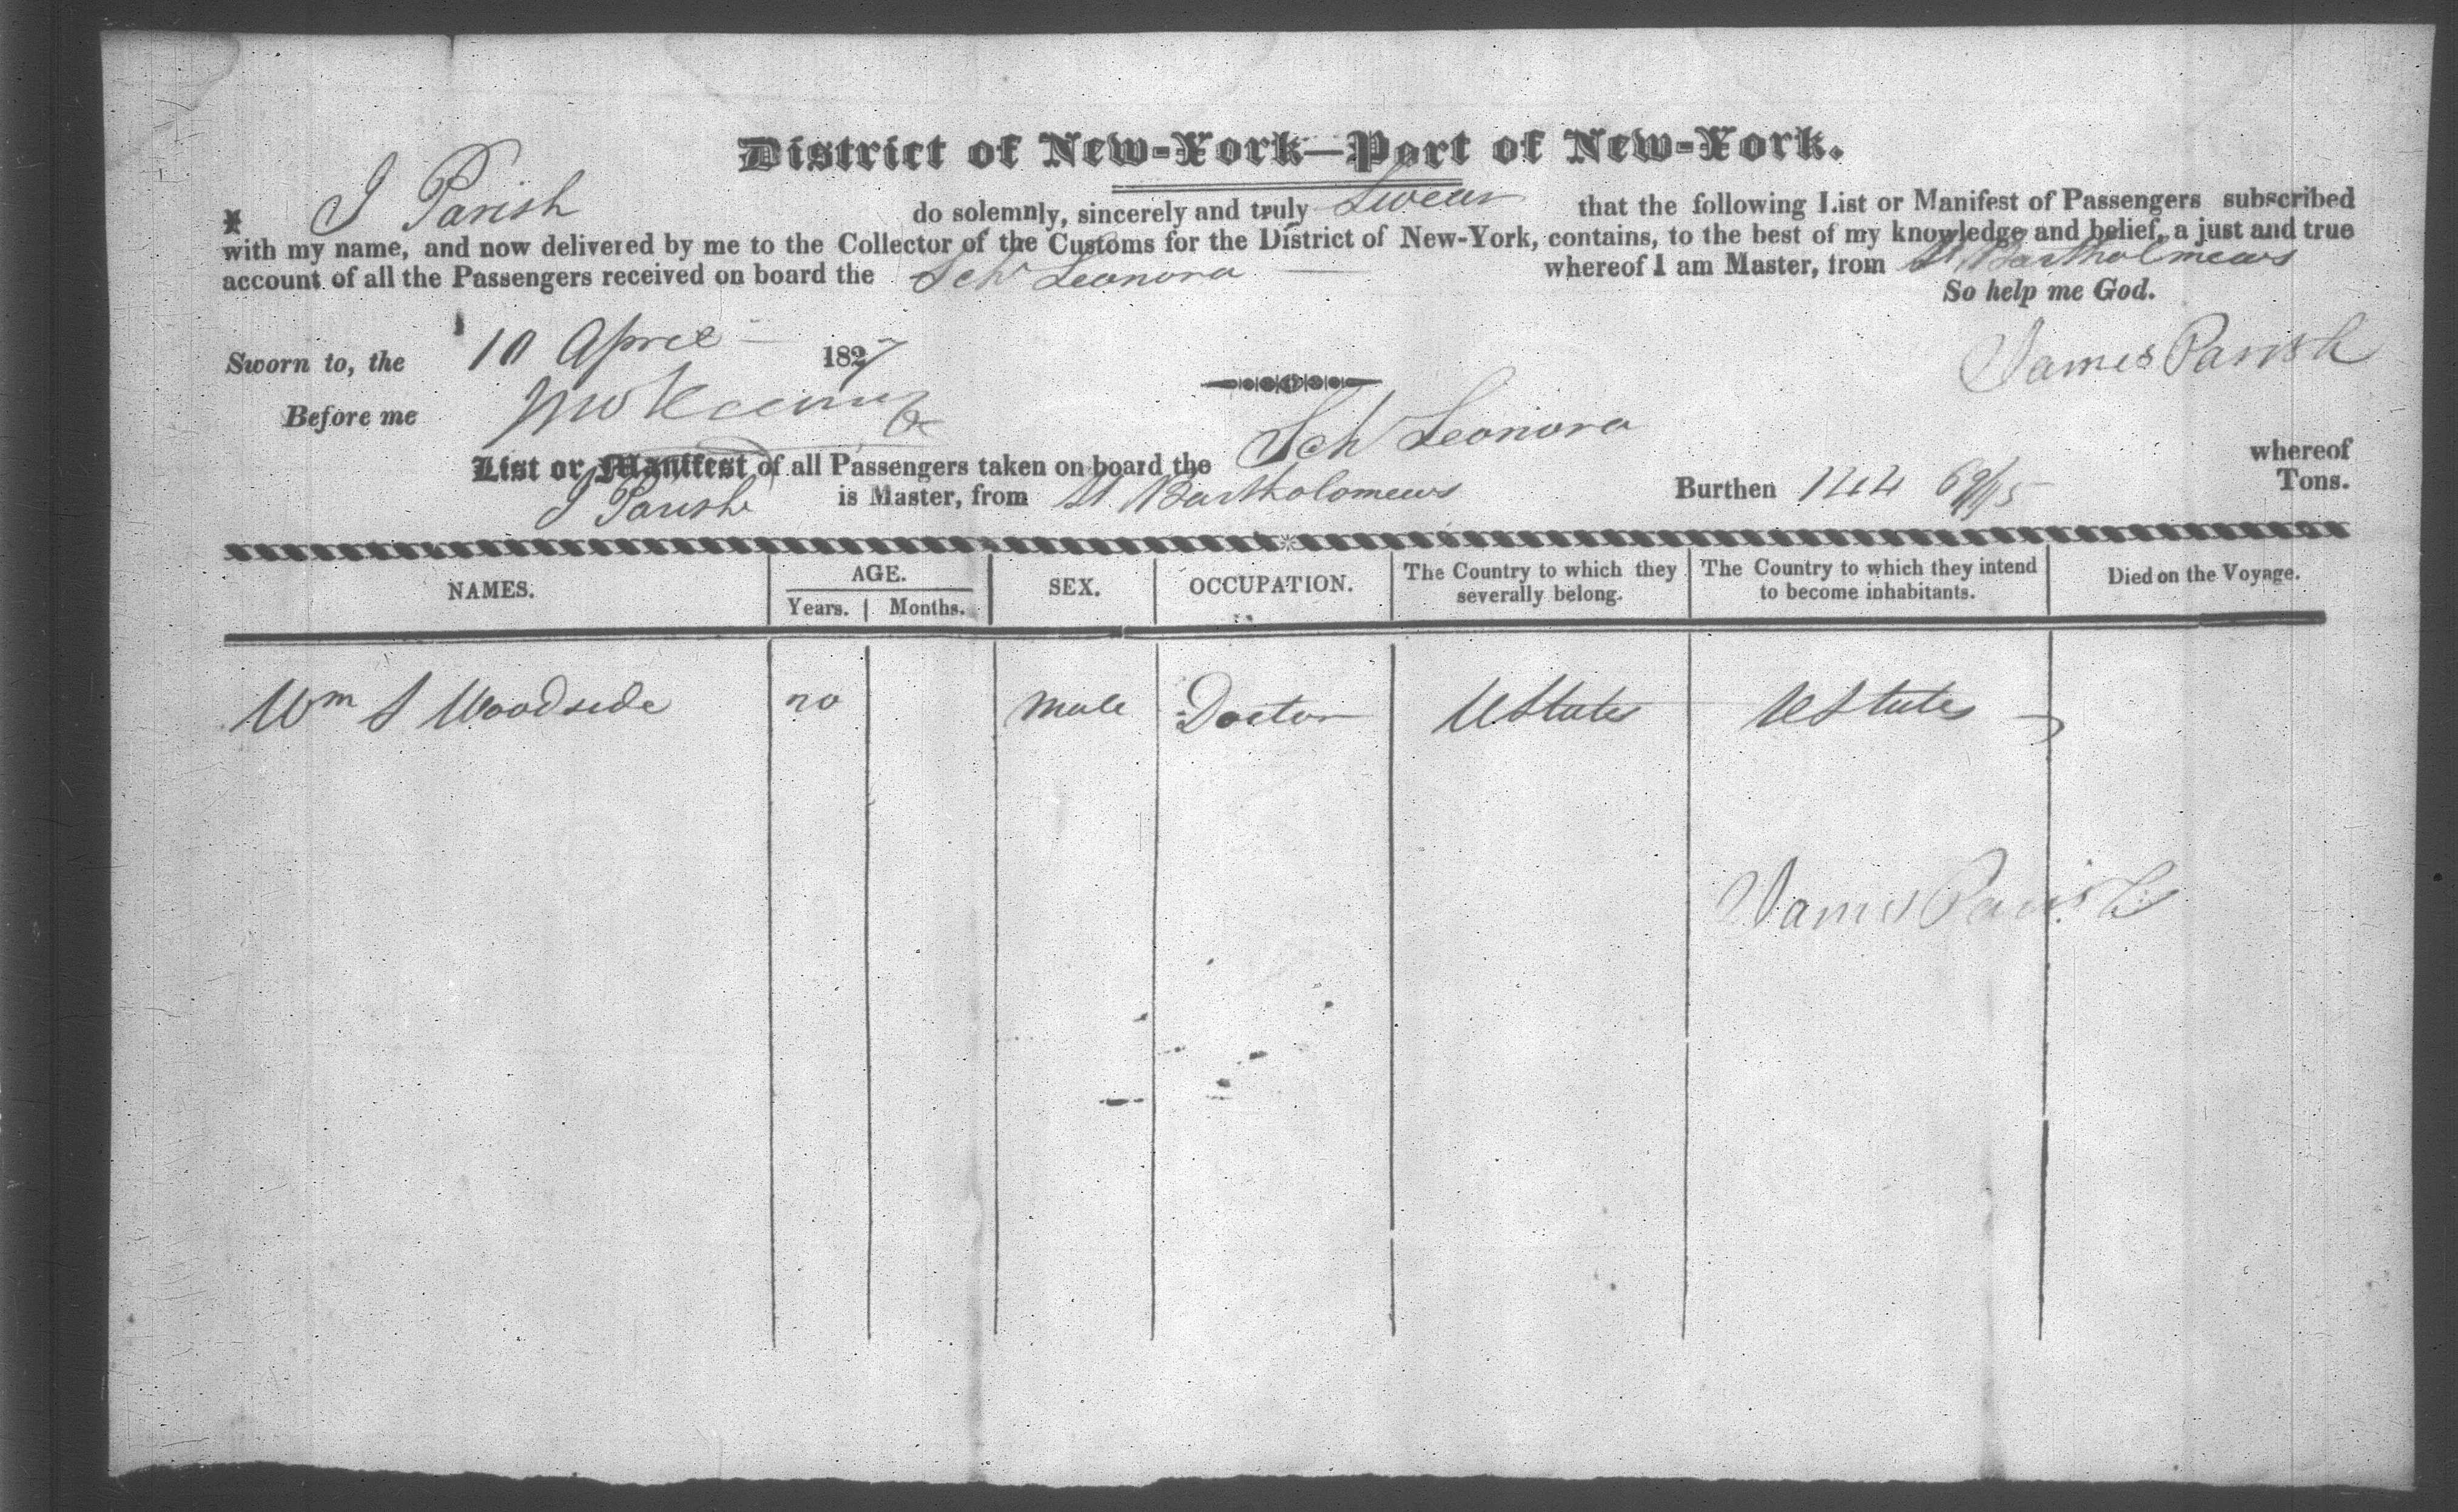 District of New-York—Port of New-York.
I J Parish do solemnly, sincerely and truly Swear that the following List or Manifest of Passengers subscribed
with my name, and now delivered by me to the Collector of the Customs for the District of New-York, contains, to the best of my knowledge and belief, a just and true
account of all the Passengers received on board the Schr Leonora whereof I am Master, from St Bartholomews
So help me God.
Sworn to, the 10 April 1827 James Parish
Before me
List or Manifest of all Passengers taken on board the Schr Leonora whereof
J Parish is Master, from St. Bartholomews Burthen 144 Tons.
NAMES. AGE. SEX. OCCUPATION. The Country to which they severally belong. The Country to which they intend to become inhabitants. Died on the Voyage.
Years. Months.
Wm S Woodside male Doctor UStates UStates
James Parish